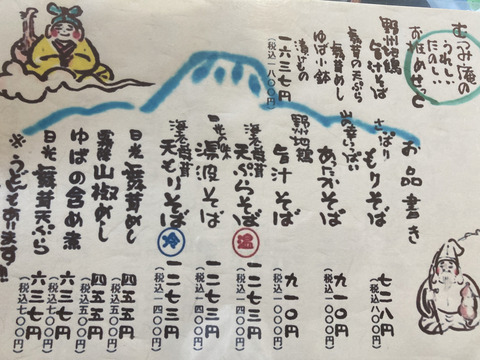 むつみ庵の
うれしい
たのしい
せっと
野州地鶏
旨汁そば
舞茸の天ぷら
舞茸めし
ゆば小鉢
漬もの
一六三七円
(税込一八〇〇円)
お品書き
さっぱり もりそば 七二八円
(税込八〇〇円)
山の幸いっぱい あたかそば 九一〇円
(税込一〇〇〇円)
野州地鶏 旨汁そば 九一〇円
(税込一〇〇〇円)
海老舞茸 天ぷらそば 温 一二七三円
(税込一四〇〇円)
日光の味 湯波そば 一二七三円
(税込一四〇〇円)
海老舞茸 天もりそば 冷 一二七三円
(税込一四〇〇円)
日光舞茸めし 四五五円
(税込五〇〇円)
霧降山椒めし 四五五円
(税込五〇〇円)
ゆばの含め煮 六三七円
(税込七〇〇円)
日光舞茸天ぷら 六三七円
(税込七〇〇円)
※うどんもあります!!!